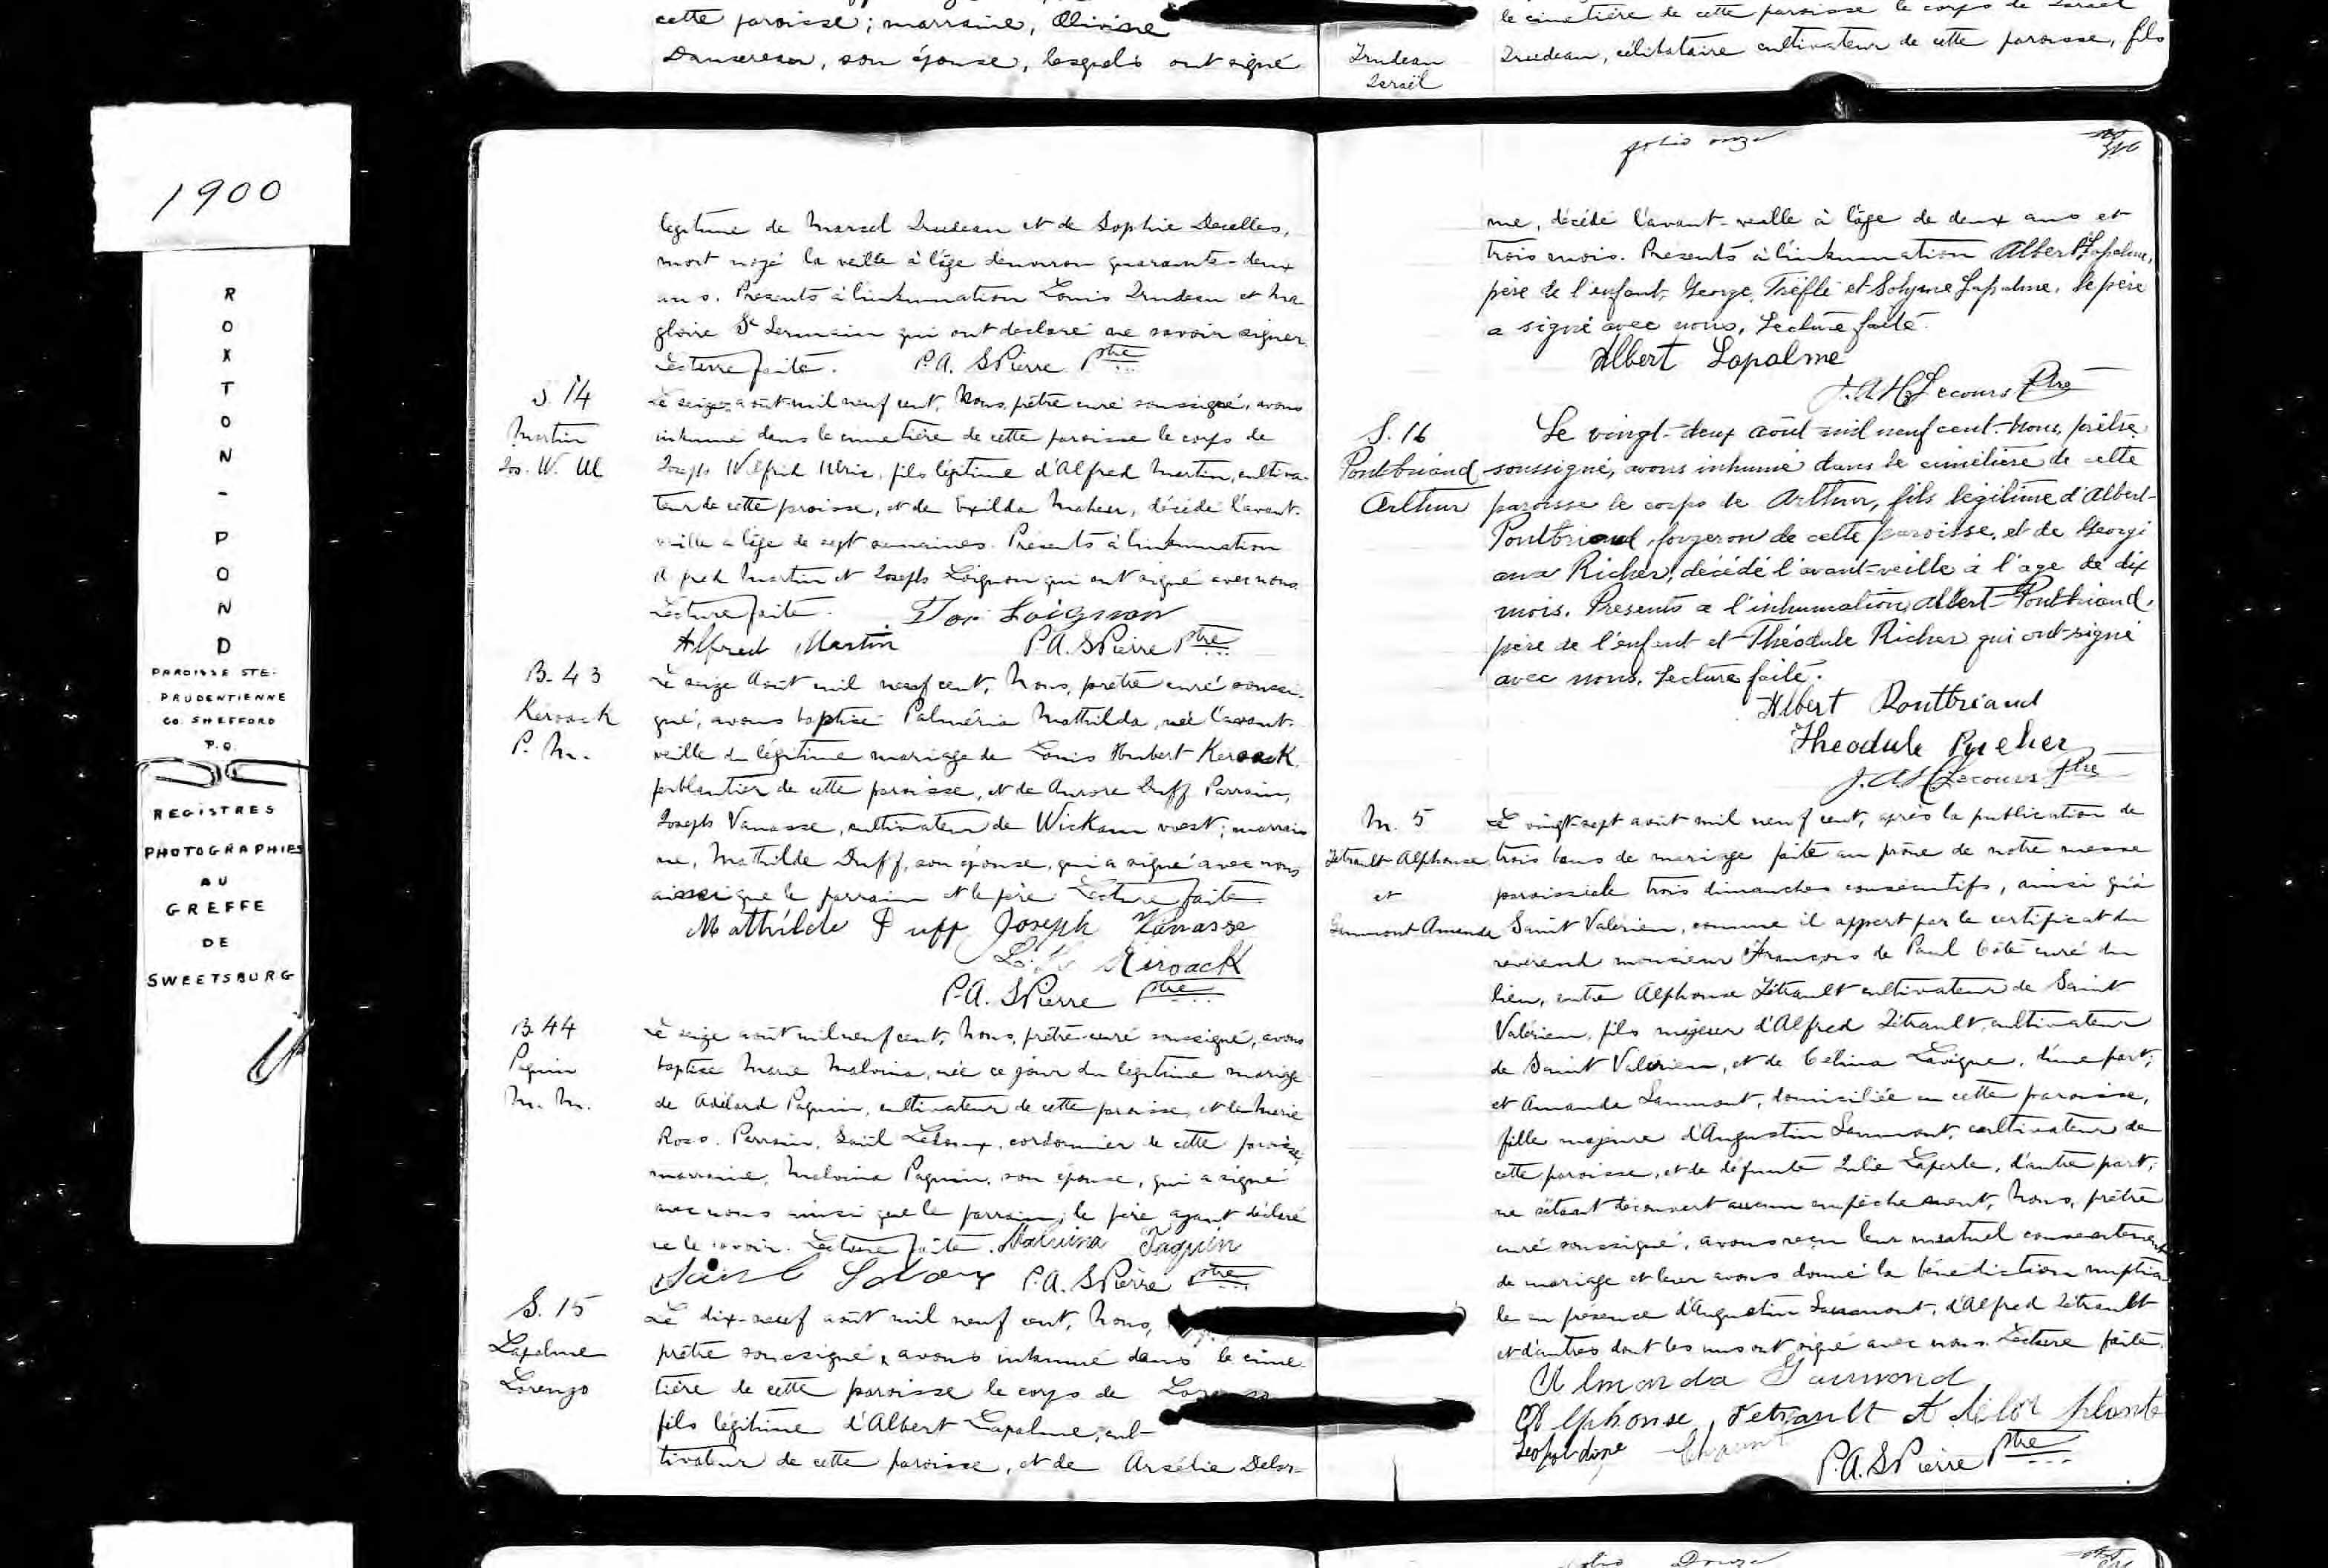 cette paroisse; marraine, Olivine
Dansereau, son épouse, lesquels ont signé
Trudeau
Israël
le cimetière de cette paroisse le corps de Israël
Trudeau, célibataire cultivateur de cette paroisse, fils
1900
ROXTON-POND
PAROISSE STE-
PRUDENTIENNE
CO. SHEFFORD
P.Q.
REGISTRES
PHOTOGRAPHIES
AU
GREFFE
DE
SWEETSBURG
légitime de Marcel Trudeau et de Sophie Decelles,
mort noyé la veille à l'âge d'environ quarante-deux
ans. Présents à l'inhumation Louis Trudeau et Ma
gloire St Germain qui ont déclaré ne savoir signer.
Lecture faite. P.A. StPierre Ptre
S. 14
Martin
Jos. W. Ul
Le seize août mil neuf cent, Nous, prêtre curé soussigné, avons
inhumé dans le cimetière de cette paroisse le corps de
Joseph Wilfrid Ulric, fils légitime d'Alfred Martin, cultiva-
teur de cette paroisse, et de Exilda Maheu, décédé l'avant-
veille à l'âge de sept semaines. Présents à l'inhumation
Alfred Martin et Joseph Loignon qui ont signé avec nous.
Lecture faite. Jos Loignon
Alfred Martin P.A. StPierre Ptre
B. 43
Kéroack
P. M.
Le seize août mil neuf cent, Nous, prêtre curé soussi-
gné, avons baptisé Palméria Mathilda, née l'avant-
veille du légitime mariage de Louis Hubert Keroack,
ferblantier de cette paroisse, et de Aurore Duff. Parrain,
Joseph Vanasse, cultivateur de Wickam ouest; marrai
ne, Mathilde Duff, son épouse, qui a signé avec nous
ainsi que le parrain et le père. Lecture faite.
Mathilde Duff Joseph Vanasse
L. H. Kiroack
P.A. StPierre Ptre
B. 44
Paquin
M. M.
Le seize août mil neuf cent, Nous, prêtre curé soussigné, avons
baptisé Marie Malvina, née ce jour du légitime mariage
de Adélard Paquin, cultivateur de cette paroisse, et de Marie
Ross. Parrain, Saül Ledoux, cordonnier de cette paroisse,
marraine, Malvina Paquin, son épouse, qui a signé
avec nous ainsi que le parrain, le père ayant déclaré
ne le savoir. Lecture faite. Malvina Paquin
P.A. StPierre Ptre
S. 15
Lapalme
Lorenzo
Le dix-neuf août mil neuf cent, Nous,
prêtre soussigné, avons inhumé dans le cime-
tière de cette paroisse le corps de Lorenzo
fils légitime d'Albert Lapalme, cul-
tivateur de cette paroisse, et de Arsélie Delor-
folio onze
me, décédé l'avant-veille à l'âge de deux ans et
trois mois. Présents à l'inhumation Albert Lapalme,
père de l'enfant, George, Trefflé et Solyme Lapalme. Le père
a signé avec nous. Lecture faite.
Albert Lapalme
J.A.H. Lecours Ptre
S. 16
Pontbriand
Arthur
Le vingt-deux août mil neuf cent. Nous, prêtre
soussigné, avons inhumé dans le cimetière de cette
paroisse le corps de Arthur, fils légitime d'Albert-
Pontbriand, forgeron de cette paroisse, et de Georgi
ana Richer, décédé l'avant-veille à l'âge de dix
mois. Présents à l'inhumation, Albert Pontbriand,
père de l'enfant et Théodule Richer qui ont signé
avec nous. Lecture faite.
Albert Pontbriand
Theodule Richer
J.A.H. Lecours Ptre
M. 5
Tétrault Alphonse
et
Gaumont Amanda
Le vingt-sept août mil neuf cent, après la publication de
trois bans de mariage faite au prône de notre messe
paroissiale trois dimanches consécutifs, ainsi qu'à
Saint Valérien, comme il appert par le certificat du
révérend monsieur François de Paul Côté curé du
lieu, entre Alphonse Tétrault cultivateur de Saint
Valérien, fils majeur d'Alfred Tétrault, cultivateur
de Saint Valérien, et de Célina Lavigne, d'une part;
et Amanda Gaumont, domiciliée en cette paroisse,
fille majeure d'Augustin Gaumont, cultivateur de
cette paroisse, et de défunte Julie Laperle, d'autre part;
ne s'étant découvert aucun empêchement, Nous, prêtre
curé soussigné, avons reçu leur mutuel consentement
de mariage et leur avons donné la bénédiction nuptia
le en présence d'Augustin Gaumont, d'Alfred Tétrault
et d'autres dont les uns ont signé avec nous. Lecture faite.
Almanda Gaumond
Alphonse Tetrault
P.A. StPierre Ptre
folio Douze